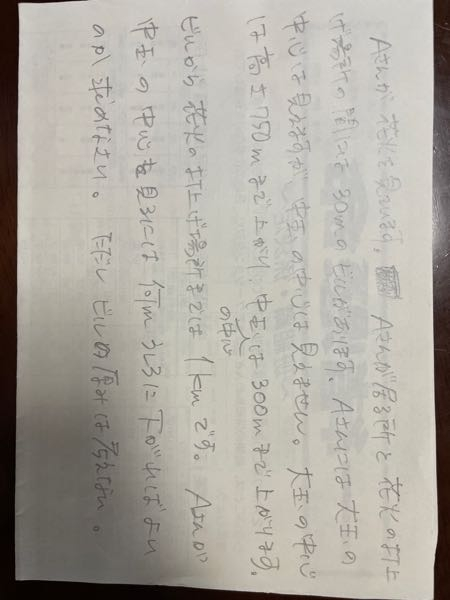 Aさんが花火を見ています。Aさんが居る所と花火の打上
げ場所の間には30mのビルがあります。Aさんには大玉の
中心は見えますが中玉の中心は見えません。大玉の中心
は高さ750mまで上がり、中玉の中心は300mまで上がります。
ビルから花火の打上げ場所までは1kmです。Aさんが
中玉の中心を見るには何mうしろに下がればよい
のか求めなさい。ただしビルの厚みは考えない。